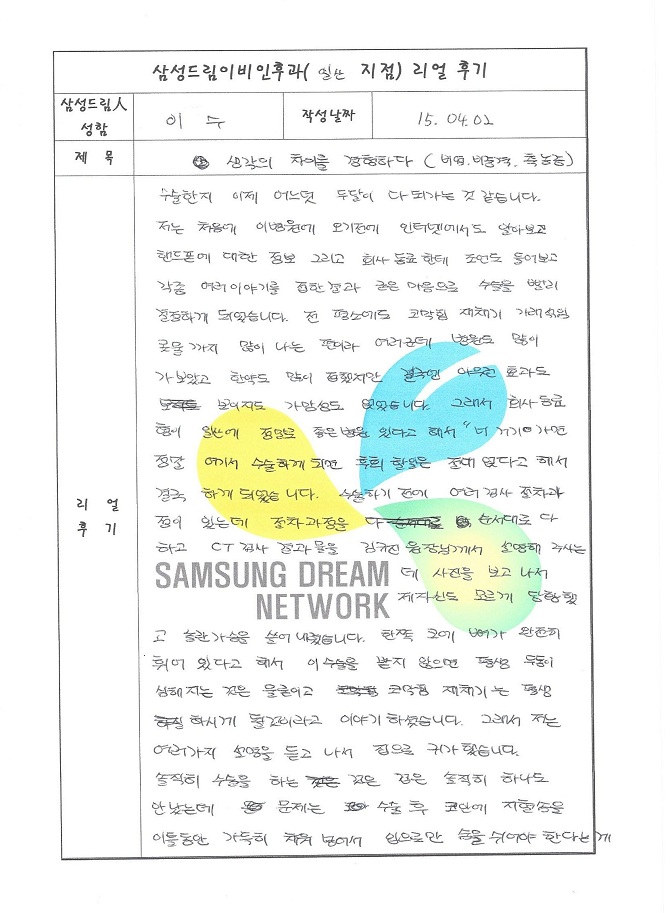 삼성드림이비인후과( 일산 지점) 리얼 후기
삼성드림人 성함
이 수
작성날짜
15. 04. 02
제 목
② 생각의 차이를 경험하다 ( 비염. 비중격. 축농증)
리 얼 후 기
수술한지 이제 어느덧 두달이 다 되가는 것 같습니다.
저는 처음에 이병원에 오기전에 인터넷에서도 알아보고
핸드폰에 대한 정보 그리고 회사 동료 한테 조언도 들어보고
각종 여러이야기를 접한결과 굳은 마음으로 수술을 빨리
결정하게 되었습니다. 전 평소에도 코막힘 재채기 가래
콧물까지 많이 나는 편이라 여러군데 병원도 많이
가보았고 한약도 많이 접했지만 결국엔 아무런 효과도
보이지도 가망성도 없었습니다. 그래서 회사 동료
형이 일산에 정말로 좋은병원 있다고 해서 "너 거기" 가면
정말 여기서 수술하게 되면 후회 할일은 절대 없다고 해서
결국 하게 되었습니다. 수술하기 전에 여러 검사 절차과
정이 있는데 절차과정을 다 순서대로 다
하고 CT 검사 결과물을 김규진 원장님께서 설명해 주시는
데 사진을 보고 나서
SAMSUNG DREAM
NETWORK
제자신도 모르게 당황했
고 놀란가슴을 쓸어 내렸습니다. 한쪽 코에 뼈가 완전히
휘어 있다고 해서 이수술을 받지 않으면 평생 두통이
심해지는 것은 물론이고 코막힘 재채기는 평생
하시게 될것이라고 이야기 하셨습니다. 그래서 저는
여러가지 설명을 듣고 나서 집으로 귀가 했습니다.
솔직히 수술을 하는 것은 겁은 솔직히 하나도
안났는데 문제는 수술 후 코안에 지혈솜을
이틀동안 가득히 채워 넣어서 입으로만 숨을 쉬어야 한다는게